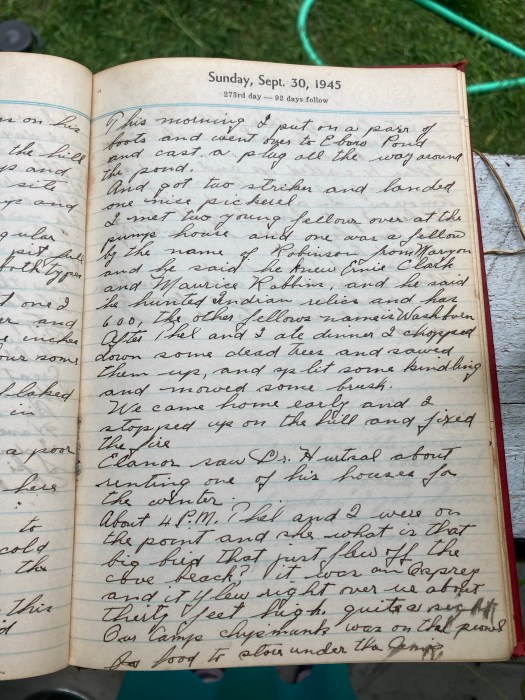 Sunday, Sept. 30, 1945
273rd day — 92 days follow
This morning I put on a parr of
boots and went over to Ebors Pond
and cast a plug all the way around
the pond.
And got two striker and landed
one nice pickerel
I met two young fellows over at the
pump house and one was a fellow
by the name of Robinson from Maryon
and he said he knew Ernie Clark
and Maurice Robbins, and he said
he hunted Indian relics and has
600, the other fellows name is Washburn
After Thel and I ate dinner I chopped
down some dead trees and sawed
them up, and split some kindling
and mowed some brush.
We came home early and I
stopped up on the hill and fixed
the fire
Elanor saw Dr. H about
renting one of his houses for
the winter.
About 4 P.M. Thel and I were on
the point and she what is that
big bird that just flew off the
cove beach? it was an Osprey
and it flew right over us about
thirty feet high. quite a
Our camp chipmunk was on the
for food to store under the Camp
on his
the hill
and
site
and
gular
pit
both types
one I
and
inches
our some
flaked
in
a poor
here
to
cold
the
this